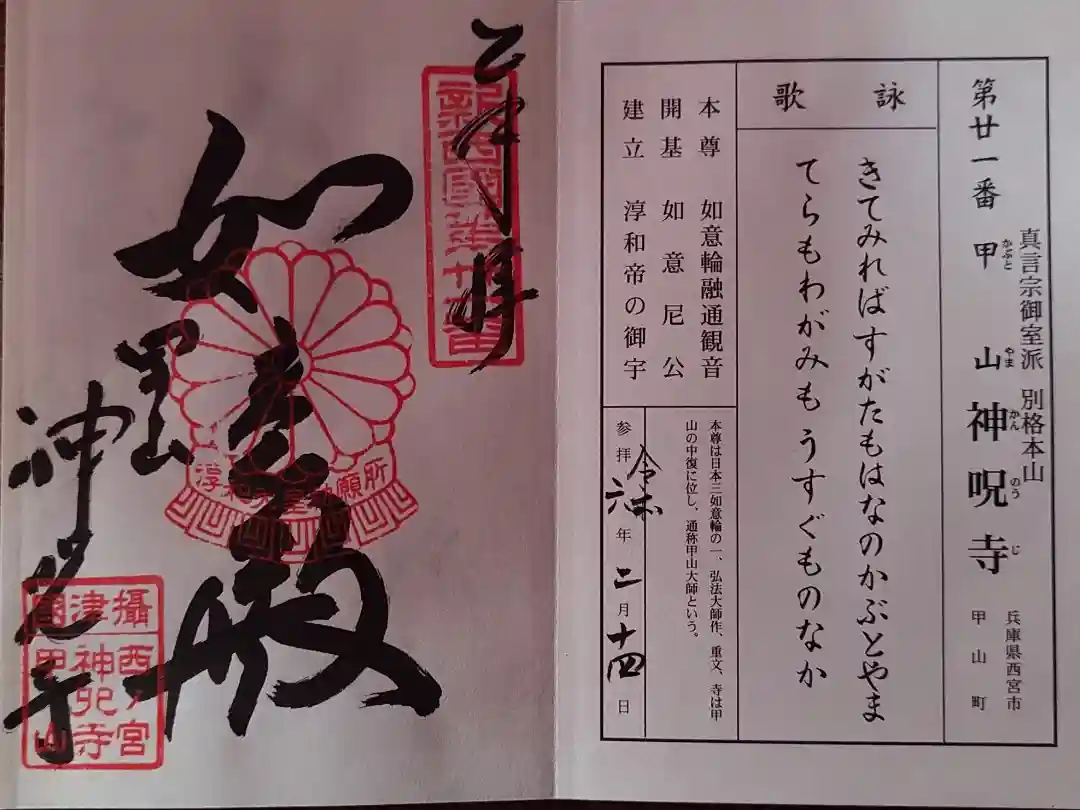 第廿一番
真言宗御室派 別格本山
甲山神呪寺
かぶと やま かん のう じ
兵庫県西宮市
甲山町
詠歌
きてみればすがたもはなのかぶとやま
てらもわがみもうすぐものなか
本尊 如意輪融通観音
開基 如意尼公
建立 淳和帝の御宇
本尊は日本三如意輪の一、弘法大師作、重文、寺は甲
山の中復に位し、通称甲山大師という。
参拝 令和六年二月十四日
奉拝
新西國第廿一番
如意殿
甲山
神呪寺
淳和天皇勅願所
攝津國
西ノ宮
神呪寺
甲山